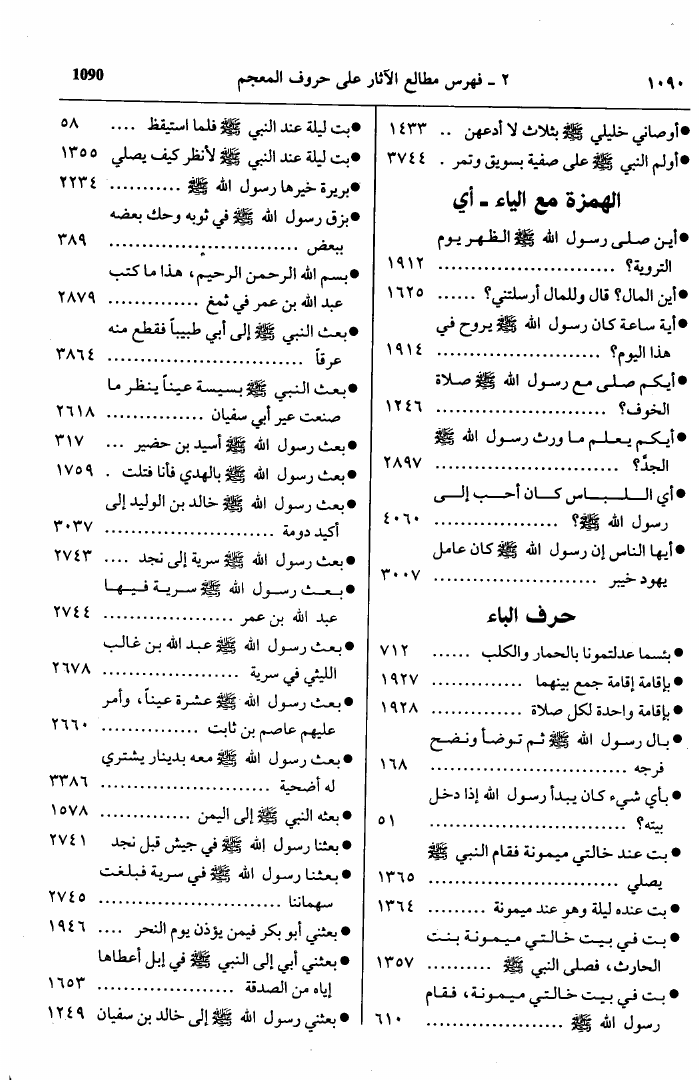 ١٠٩٠
٢ ـ فهرس مطالع الآثار على حروف المعجم
1090
●أوصاني خليلي ﷺ بثلاث لا أدعهن .. ١٤٣٣
●أولم النبي ﷺ على صفية بسويق وتمر . ٣٧٤٤
الهمزة مع الياء ـ أي
●أين صلى رسول الله ﷺ الظهر يوم
التروية؟ .......................... ١٩١٢
●أين المال؟ قال وللمال أرسلتني؟ ...... ١٦٢٥
●أية ساعة كان رسول الله ﷺ يروح في
هذا اليوم؟ ........................ ١٩١٤
●أيكم صلى مع رسول الله ﷺ صلاة
الخوف؟ .......................... ١٢٤٦
●أيكم يعلم ما ورث رسول الله ﷺ
الجدّ؟ ........................... ٢٨٩٧
●أي اللباس كان أحب إلى
رسول الله ﷺ؟ .................. ٤٠٦٠
●أيها الناس إن رسول الله ﷺ كان عامل
يهود خيبر ........................ ٣٠٠٧
حرف الباء
●بئسما عدلتمونا بالحمار والكلب ...... ٧١٢
●بإقامة إقامة جمع بينهما .............. ١٩٢٧
●بإقامة واحدة لكل صلاة .............. ١٩٢٨
●بال رسول الله ﷺ ثم توضأ ونضح
فرجه ............................ ١٦٨
●بأي شيء كان يبدأ رسول الله إذا دخل
بيته؟ ............................ ٥١
●بت عند خالتي ميمونة فقام النبي ﷺ
يصلي ............................ ١٣٦٥
●بت عنده ليلة وهو عند ميمونة ......... ١٣٦٤
●بت في بيت خالتي ميمونة بنت
الحارث، فصلى النبي ﷺ .......... ١٣٥٧
●بت في بيت خالتي ميمونة، فقام
رسول الله ﷺ .................... ٦١٠
●بت ليلة عند النبي ﷺ فلما استيقظ .... ٥٨
●بت ليلة عند النبي ﷺ لأنظر كيف يصلي ١٣٥٥
●بريرة خيرها رسول الله ﷺ ........... ٢٢٣٤
●بزق رسول الله ﷺ في ثوبه وحك بعضه
ببعض ............................ ٣٨٩
●بسم الله الرحمن الرحيم، هذا ما كتب
عبد الله بن عمر في ثمغ ............. ٢٨٧٩
●بعث النبي ﷺ إلى أبي طبيباً فقطع منه
عرقاً ............................. ٣٨٦٤
●بعث النبي ﷺ بسيسة عيناً ينظر ما
صنعت عير أبي سفيان .............. ٢٦١٨
●بعث رسول الله ﷺ أسيد بن حضير ... ٣١٧
●بعث رسول الله ﷺ بالهدي فأنا فتلت . ١٧٥٩
●بعث رسول الله ﷺ خالد بن الوليد إلى
أكيد دومة ......................... ٣٠٣٧
●بعث رسول الله ﷺ سرية إلى نجد .... ٢٧٤٣
●بعث رسول الله ﷺ سرية فيها
عبد الله بن عمر .................... ٢٧٤٤
●بعث رسول الله ﷺ عبد الله بن غالب
الليثي في سرية .................... ٢٦٧٨
●بعث رسول الله ﷺ عشرة عيناً، وأمر
عليهم عاصم بن ثابت .............. ٢٦٦٠
●بعث رسول الله ﷺ معه بدينار يشتري
له أضحية ......................... ٣٣٨٦
●بعثه النبي ﷺ إلى اليمن ............. ١٥٧٨
●بعثنا رسول الله ﷺ في جيش قبل نجد ٢٧٤١
●بعثنا رسول الله ﷺ في سرية فبلغت
سهماننا ........................... ٢٧٤٥
●بعثني أبو بكر فيمن يؤذن يوم النحر .... ١٩٤٦
●بعثني أبي إلى النبي ﷺ في إبل أعطاها
إياه من الصدقة .................... ١٦٥٣
●بعثني رسول الله ﷺ إلى خالد بن سفيان ١٢٤٩